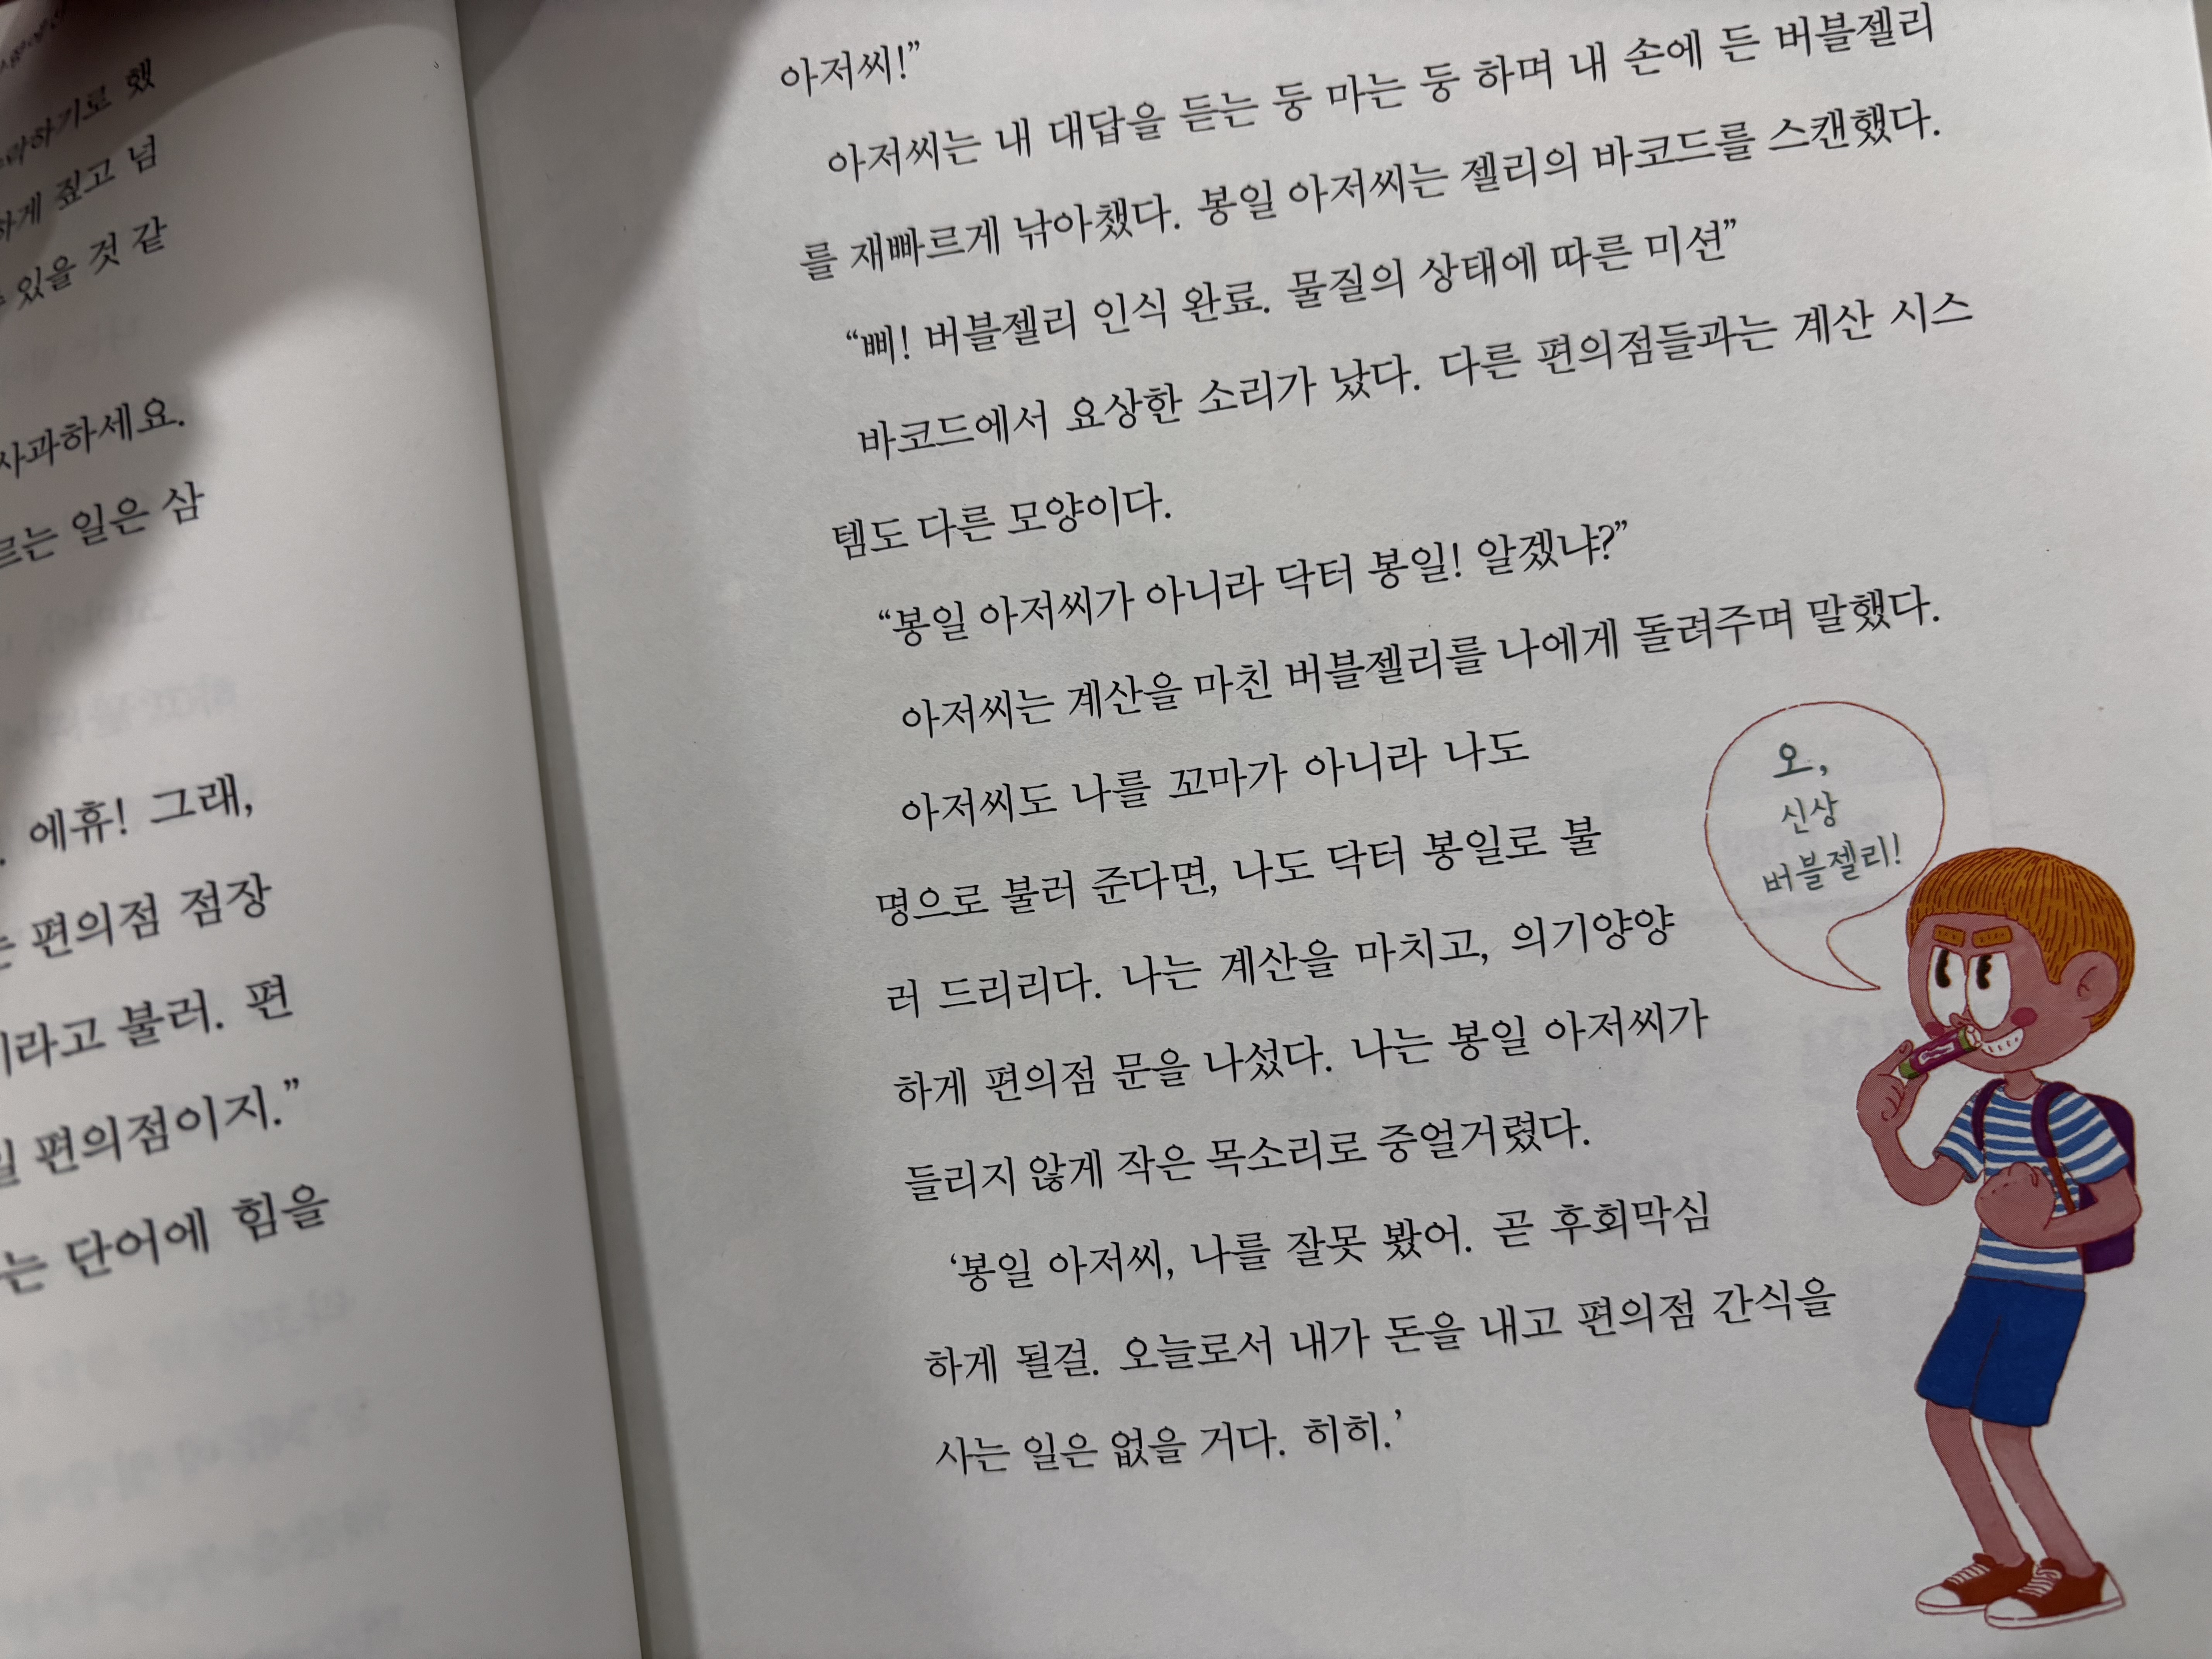 하기로 했
하게 짚고 넘
있을 것 같
사과하세요.
르는 일은 삼
에휴! 그래,
편의점 점장
라고 불러. 편
편의점이지.”
는 단어에 힘을
아저씨!”
아저씨는 내 대답을 듣는 둥 마는 둥 하며 내 손에 든 버블젤리
를 재빠르게 낚아챘다. 봉일 아저씨는 젤리의 바코드를 스캔했다.
“삐! 버블젤리 인식 완료. 물질의 상태에 따른 미션”
바코드에서 요상한 소리가 났다. 다른 편의점들과는 계산 시스
템도 다른 모양이다.
“봉일 아저씨가 아니라 닥터 봉일! 알겠냐?”
아저씨는 계산을 마친 버블젤리를 나에게 돌려주며 말했다.
아저씨도 나를 꼬마가 아니라 나도
명으로 불러 준다면, 나도 닥터 봉일로 불
러 드리리다. 나는 계산을 마치고, 의기양양
하게 편의점 문을 나섰다. 나는 봉일 아저씨가
들리지 않게 작은 목소리로 중얼거렸다.
‘봉일 아저씨, 나를 잘못 봤어. 곧 후회막심
하게 될걸. 오늘로서 내가 돈을 내고 편의점 간식을
사는 일은 없을 거다. 히히.’
오,
신상
버블젤리!